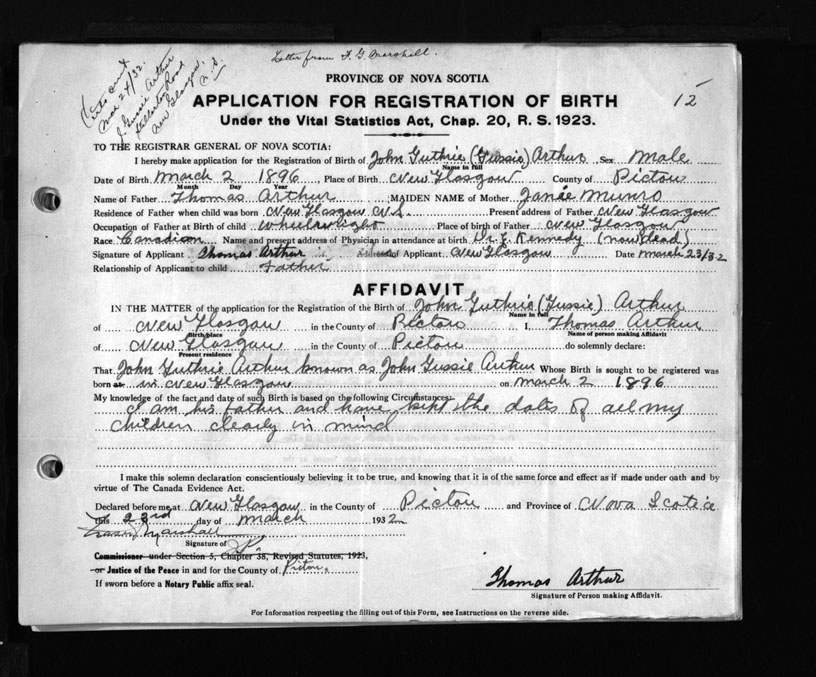 Letter from F. G. Marshall.
Mar 24/32.
J. Gussie Arthur
Road
New Glasgow,
N. S.
12
PROVINCE OF NOVA SCOTIA
APPLICATION FOR REGISTRATION OF BIRTH
Under the Vital Statistics Act, Chap. 20, R. S. 1923.
TO THE REGISTRAR GENERAL OF NOVA SCOTIA:
I hereby make application for the Registration of Birth of John Guthrie (Gussie) Arthur Sex Male
Name in full
Date of Birth March 2 1896 Place of Birth New Glasgow County of Pictou
Month Day Year
Name of Father Thomas Arthur MAIDEN NAME of Mother Janie Munro
Residence of Father when child was born New Glasgow N.S. Present address of Father New Glasgow
Occupation of Father at Birth of child Wheelwright Place of birth of Father New Glasgow
Race Canadian Name and present address of Physician in attendance at birth Dr. E. Kennedy (now dead)
Signature of Applicant Thomas Arthur Address of Applicant New Glasgow Date March 23/32
Relationship of Applicant to child Father
AFFIDAVIT
IN THE MATTER of the application for the Registration of the Birth of John Guthrie (Gussie) Arthur
Name in full
of New Glasgow in the County of Pictou I, Thomas Arthur
Birthplace Name of person making Affidavit
of New Glasgow in the County of Pictou do solemnly declare:
Present residence
That John Guthrie Arthur known as John Gussie Arthur Whose Birth is sought to be registered was
born at in New Glasgow on March 2 1896
My knowledge of the fact and date of such Birth is based on the following Circumstances:
I am his father and have kept the dates of all my
children clearly in mind
I make this solemn declaration conscientiously believing it to be true, and knowing that it is of the same force and effect as if made under oath and by
virtue of The Canada Evidence Act.
Declared before me at New Glasgow in the County of Pictou and Province of Nova Scotia
this 23rd day of March 1932
Marshall
Signature of J.P.
Commissioner under Section 5, Chapter 38, Revised Statutes, 1923,
or Justice of the Peace in and for the County of Pictou.
If sworn before a Notary Public affix seal.
Thomas Arthur
Signature of Person making Affidavit.
For Information respecting the filling out of this Form, see Instructions on the reverse side.